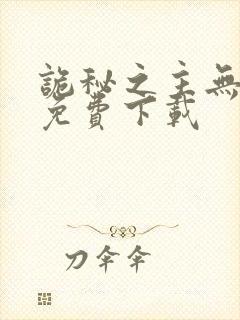 詭秘之主無
免費下載
刀傘傘